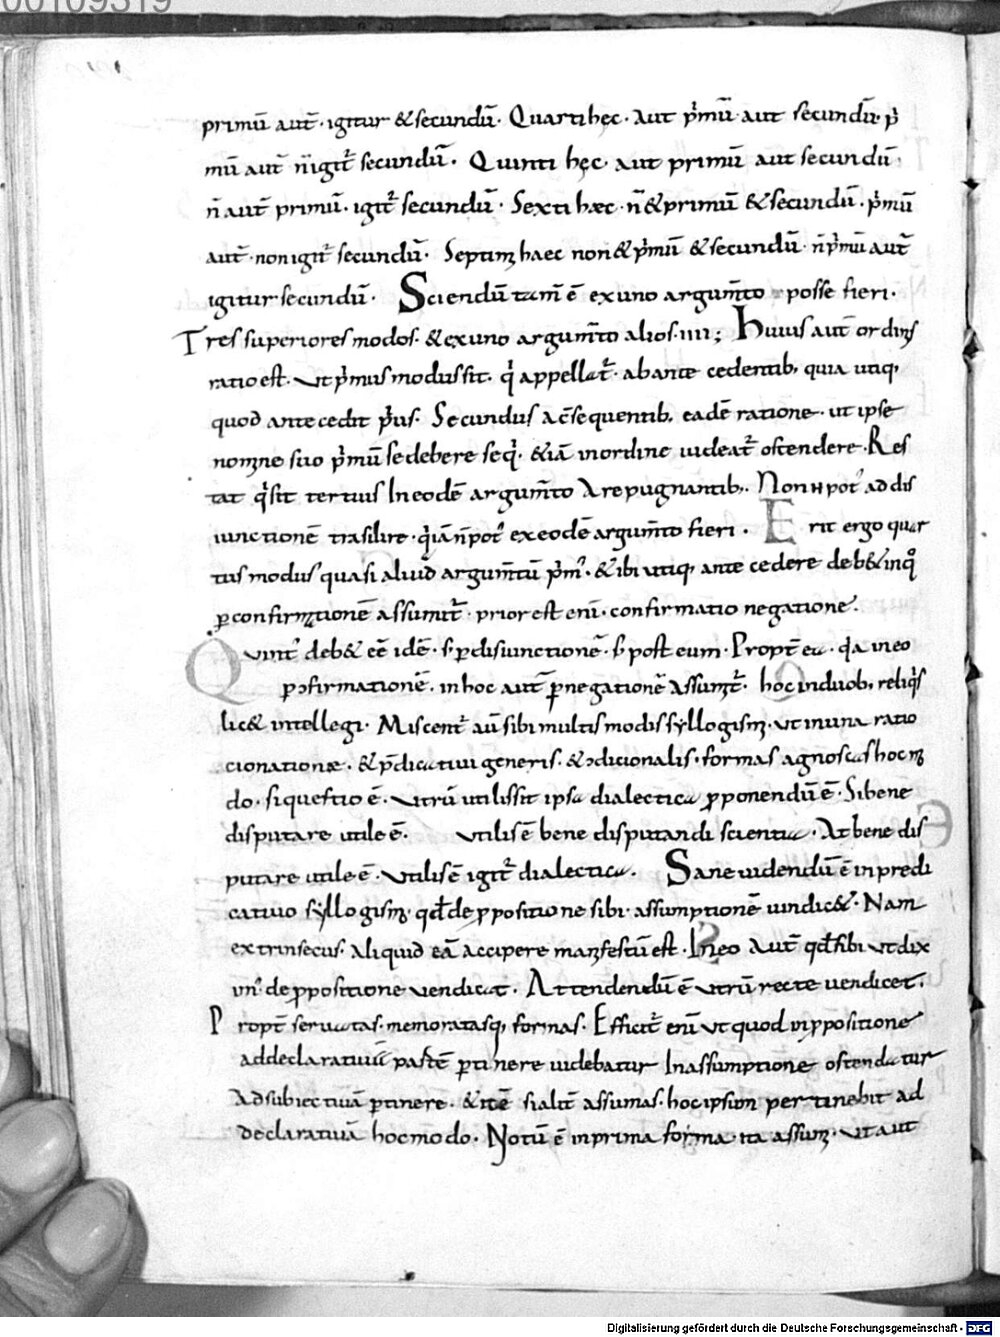 00109319
primū aut̄ · igitur & secundū · Quarti hęc · Aut p̓mū aut secundū · p̓
mū aut̄ n̄ igit̄ secundū · Quinti hęc aut primū aut secundū ·
n̄ aut̄ primū · igit̄ secundū · Sexti hæc · n̄ & primū & secundū · p̓mū
aut̄ · non igit̄ secundū · Septimi haec non & p̓mū & secundū · n̄ p̓mū aut̄
igitur secundū · Sciendū tam̄ ē ex uno argum̄to posse fieri ·
Tres superiores modos · & ex uno argum̄to alios · iiii ; huius aut̄ ordinis
ratio est · Ut p̓mus modus sit · q̓ appellat̄ · ab ante cedentib; quia utiq;
quod ante cedit p̓us · Secundus a c̄sequentib; eadē ratione · ut ipse
nomine suo p̓mū se debere seq̓ · & iā in ordine uideat̄ ostendere · Res
tat q̓ sit tertius In eodē argum̄to A repugnantib; · Non pot̓ ad dis
iunctionē trasilire · q̓ iā n̄ pot̓ ex eodē argum̄to fieri · Erit ergo quar
tus modus quasi aliud argum̄tū p̓m̓ · & ibi utiq; ante cedere deb& in q̊
ꝑ confirmationē assumit̄ · prior est enī · confirmatio negatione ·
Quint̓ deb& eē idē · s; ꝑ disiunctionē · s; post eum · Propt̄ ea · q̓a in eo
ꝑ ↄfirmationē · in hoc aut̄ ꝑ negationē Assumit̄ · hoc in duob; reliq̓s
lic& intellegi · Miscent̄ aū sibi multis modis syllogismi · ut in una ratio
cionatione · & p̄dicatiui generis · & ↄdicionalis · formas agnoscas hoc m
do · si questio ē · Utrū utilis sit ipsa dialectica ꝓponendū ē · Si bene
disputare utile ē · utilis ē bene disputandi scientia · At bene dis
putare utile ē · Utilis ē igit̄ dialectica · Sane uidendū ē in predi
catiuo syllogismo · qd̄ de ꝓpositione sibi · assumptionē uindic& · Nam
extrinsecus · aliquid eā accipere manifestū est · In eo Aut̄ qd̄ sibi ut dix
im̓ · de ꝓpositione uendicat · Attendendū ē utrū recte uendicet ·
Propt̄ seruatas · memoratasq; formas · Efficit̄ enī ut quod in ꝓpositione
ad declaratiuā partē ꝑtinere uidebatur In assumptione ostendatur
Ad subiectiuā ꝑtinere · & itē si alit̄ assumas · hoc ipsum pertinebit ad
declaratiuā hoc modo · Notū ē in prima forma · ita assumi · ut aut
Digitalisierung gefördert durch die Deutsche Forschungsgemeinschaft - DFG